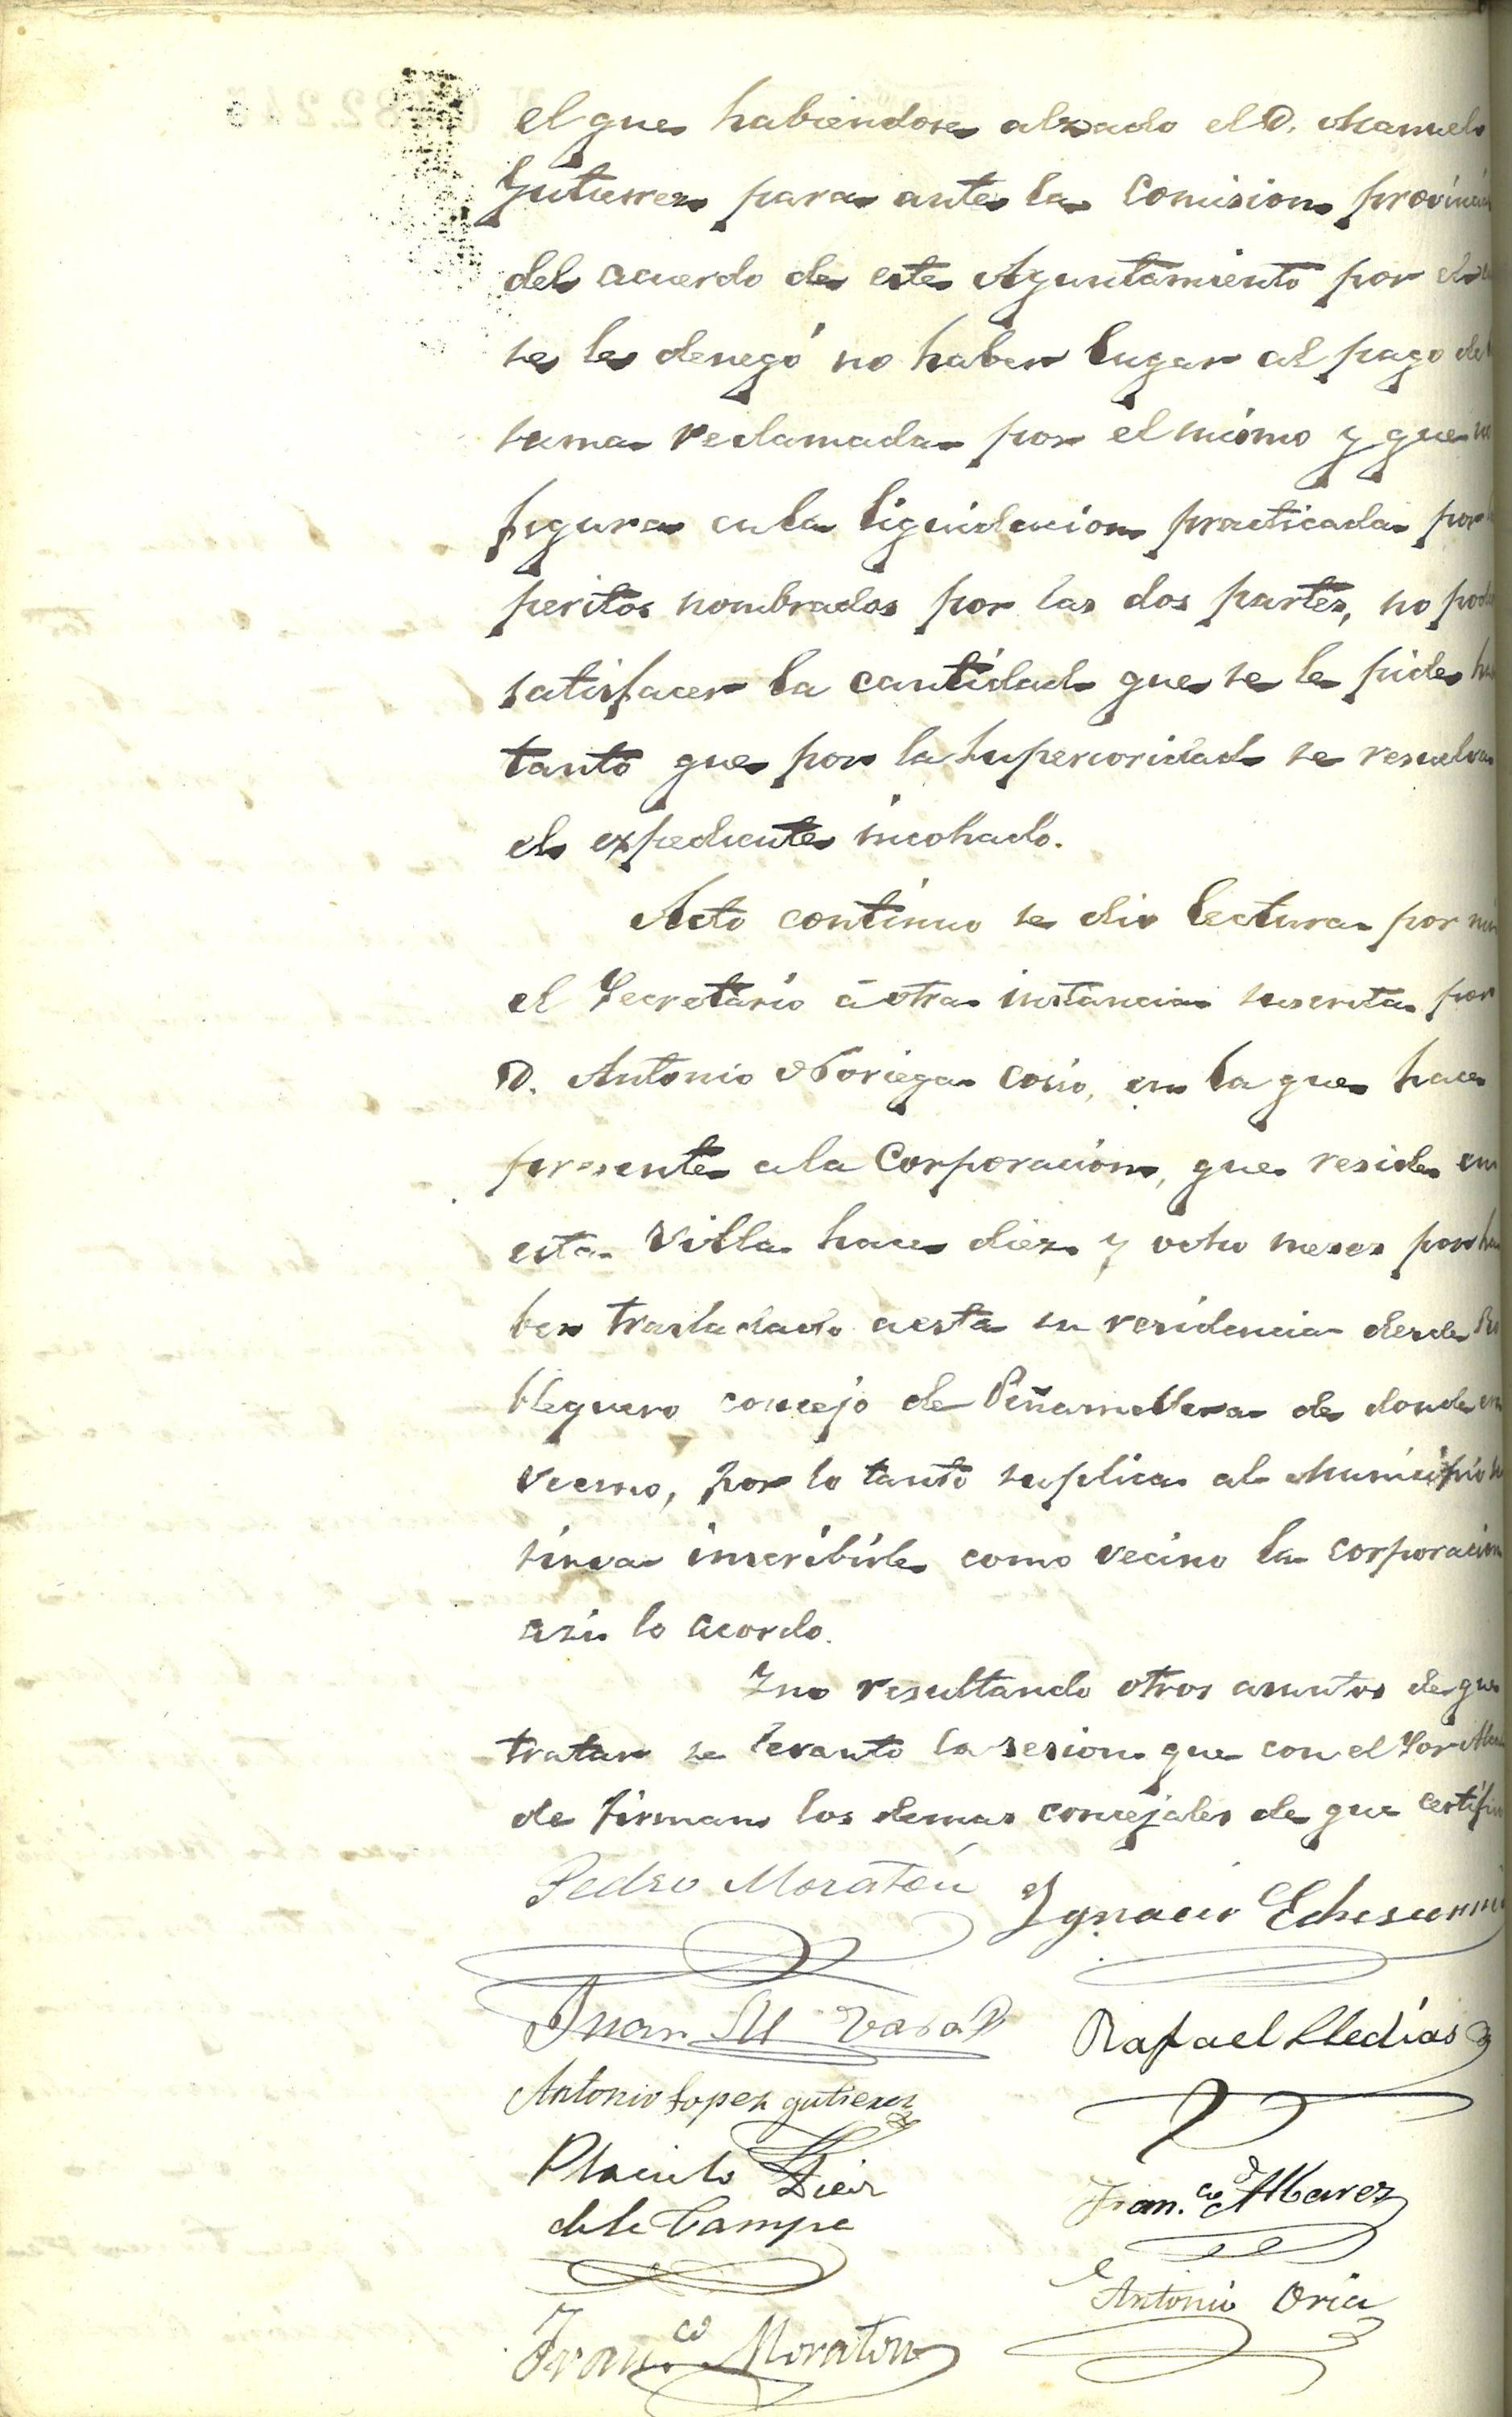 el que habiendose alzado el D. Manuel
Gutierrez para ante la Comision provincial
del acuerdo de este Ayuntamiento por el
se le denegó no haber lugar al pago de
suma reclamada por el mismo y que no
figura en la liquidacion practicada por
peritos nombrados por las dos partes, no poder
satisfacer la cantidad que se le pide
tanto que por la Superioridad se resuelva
el expediente incohado.
Acto continuo se dio lectura por mi
el Secretario á otra instancia suscrita por
D. Antonio Noriega Cosio, en la que hace
presente a la Corporacion, que reside en
esta Villa hace diez y ocho meses por ha
ber trasladado a esta su residencia desde
concejo de Peñamellera de donde era
vecino, por lo tanto suplica al Municipio se
sirva inscribirle como vecino la corporacion
asi lo acordo.
Y no resultando otros asuntos de que
tratar se levanto la sesion que con el Sor Alcal
de firman los demas concejales de que certifico
Pedro Moratón Ygnacio
Juan
Rafael Lledias
Antonio Lopez gutierrez
Placido Diez
de la Campa
Fran.co Albarez
Antonio Oria
Fran.co Moraton